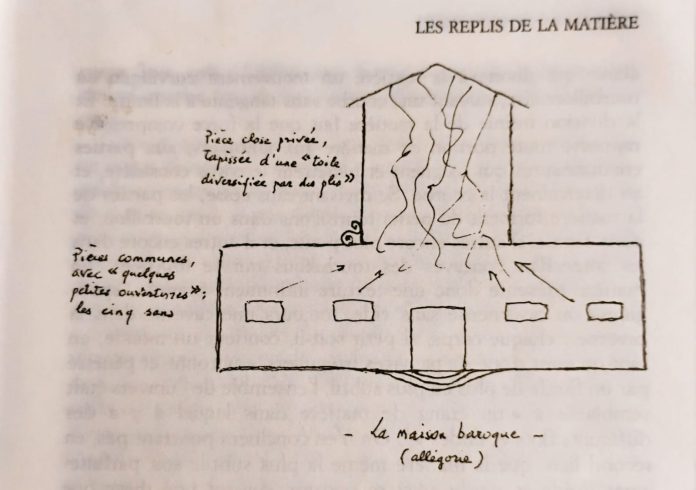 LES REPLIS DE LA MATIÈRE
Pièce close privée,
tapissée d'une « toile
diversifiée par des plis »
Pièces communes,
avec « quelques
petites ouvertures » :
les cinq sens
- La maison baroque -
(allégorie)